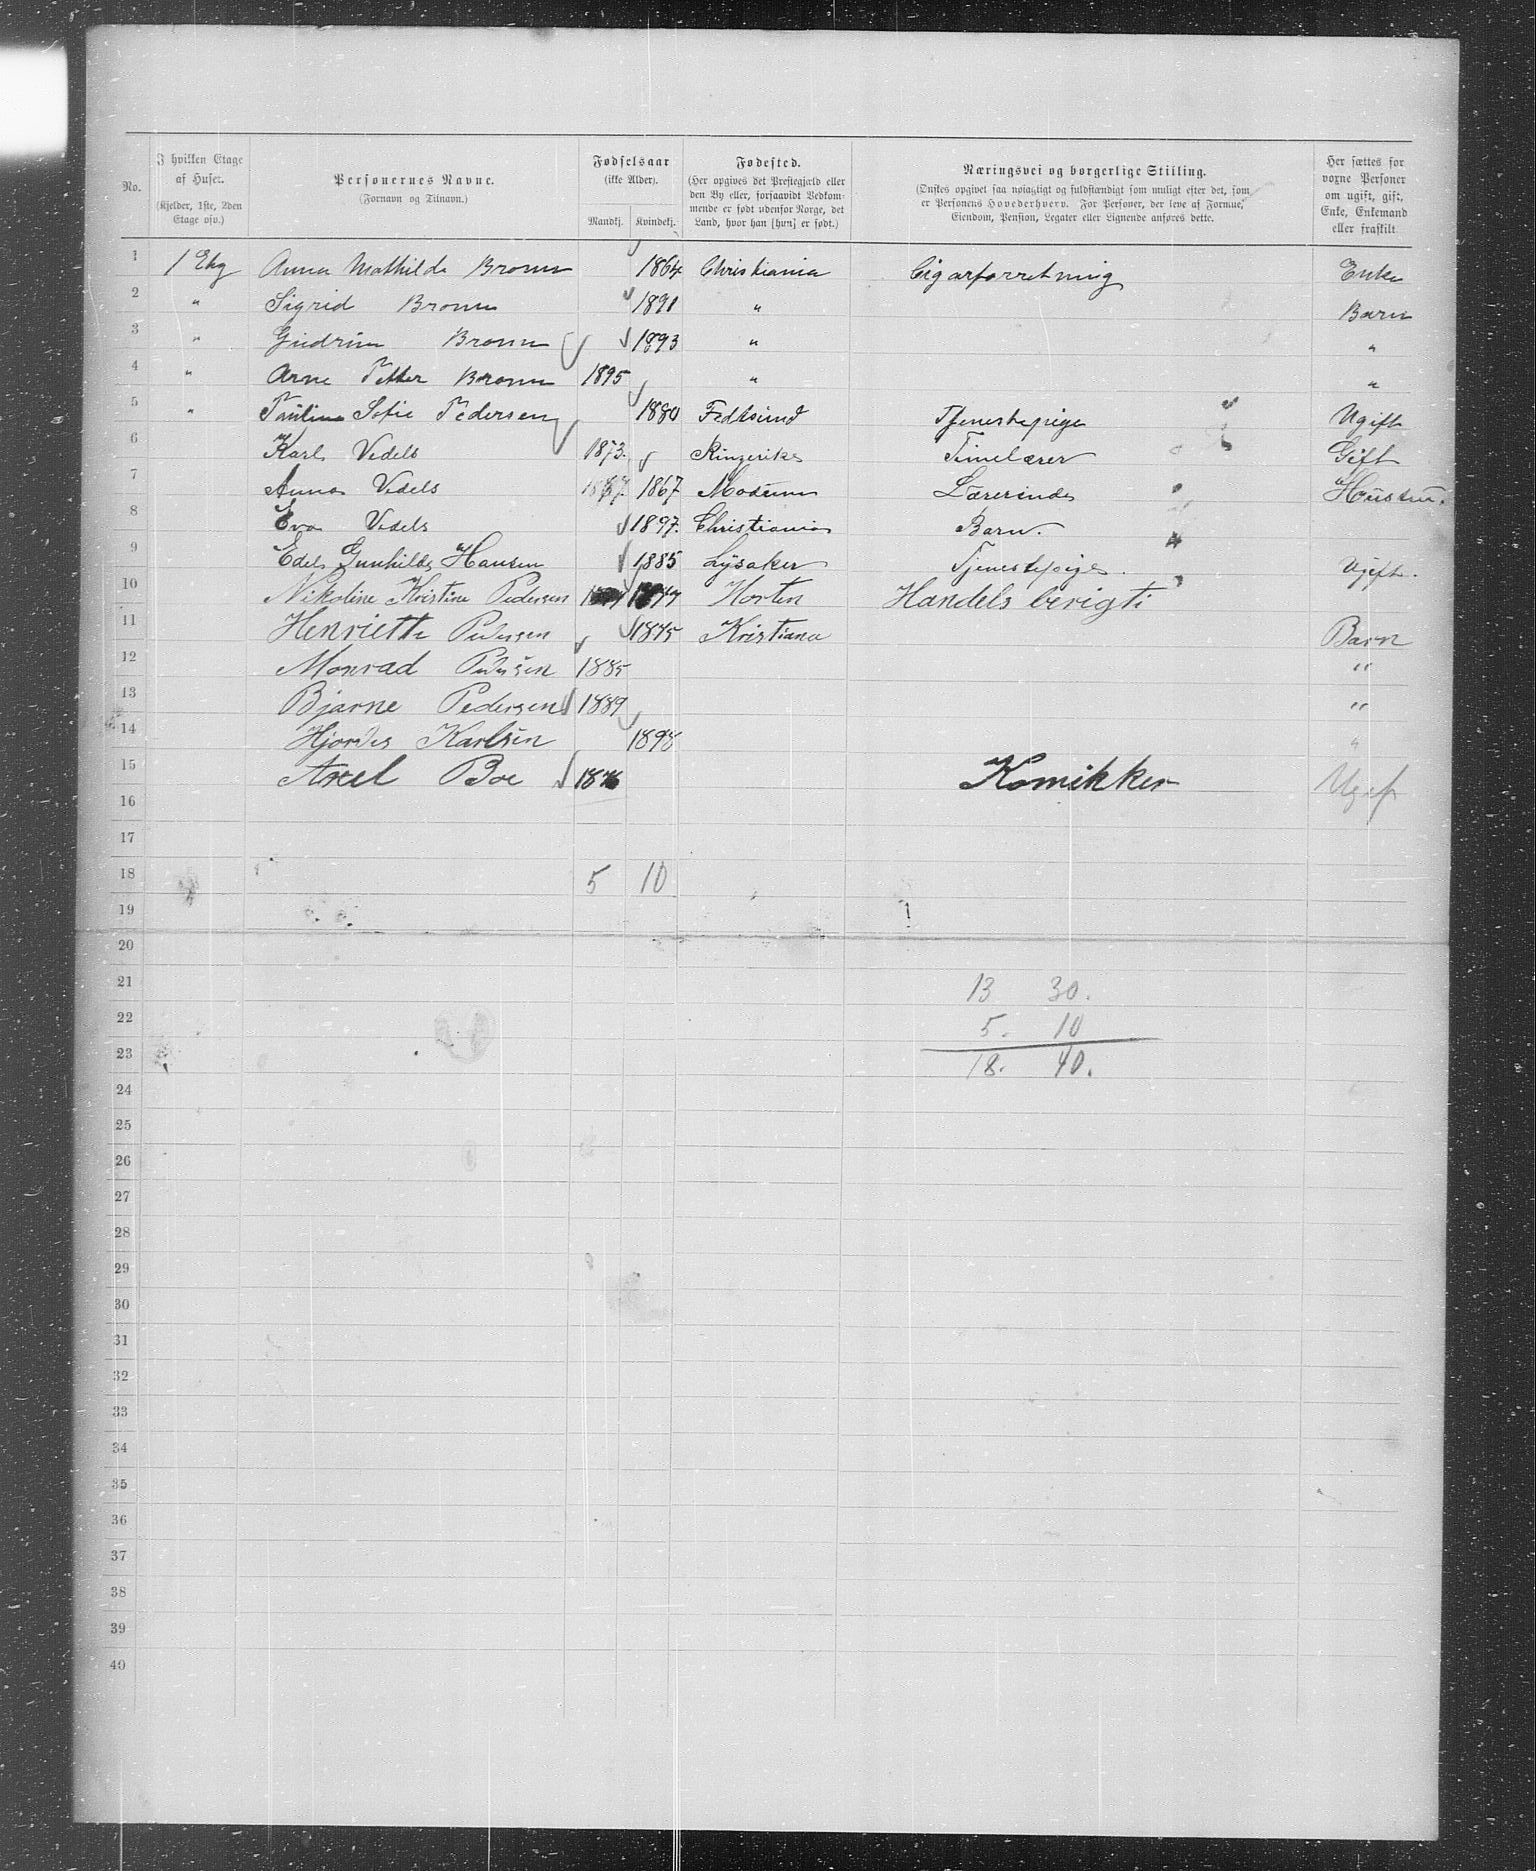 No.
I hvilken Etage af Huset. (Kjelder, 1ste, 2den Etage osv.)
Personernes Navne. (Fornavn og Tilnavn.)
Fødselsaar (ikke Alder). Mandkj. Kvindekj.
Fødested. (Her opgives det Prestegjæld eller den By eller, forsaavidt Vedkommende er født udenfor Norge, det Land, hvor han [hun] er født.)
Næringsvei og borgerlige Stilling. (Ønskes opgivet saa nøiagtigt og fuldstændigt som muligt efter det, som er Personens Hovederhverv. For Personer, der leve af Formue, Eiendom, Pension, Legater eller Lignende anføres dette.
Her sættes for voxne Personer om ugift, gift, Enke, Enkemand eller fraskilt
1 1 Etg Anna Mathilde Bronn 1864 Christiania Cigarforretning Enke
2 " Sigrid Bronn 1891 " Barn
3 " Gudrun Bronn 1893 " "
4 " Arne Petter Bronn 1895 " "
5 " Pauline Sofie Pedersen 1880 Fedtsund Tjenestepige Ugift
6 Karl Vedels 1873. Ringerike Timelærer Gift
7 Anna Vedels 1867 1867 Modum Lærerinde Hustru.
8 Eva Vedels 1897. Christiania Barn.
9 Edel Gunhilde Hansen 1885 Lysaker Tjenestepige. Ugift.
10 Nikoline Kristine Pedersen Horten Handels berigti
11 Henriette Pedersen 1875 Kristiana Barn
12 Monrad Pedersen 1885 "
13 Bjarne Pedersen 1889 "
14 Hjordis Karlsen 1898 "
15 Axel Boe 1876 Komikker Ugift
16
17
18 5 10
19
20
21 13 30.
22 5. 10
23 18. 40.
24
25
26
27
28
29
30
31
32
33
34
35
36
37
38
39
40